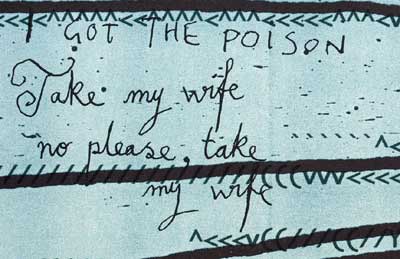 I GOT THE POISON
Take my wife
no please, take
my wife